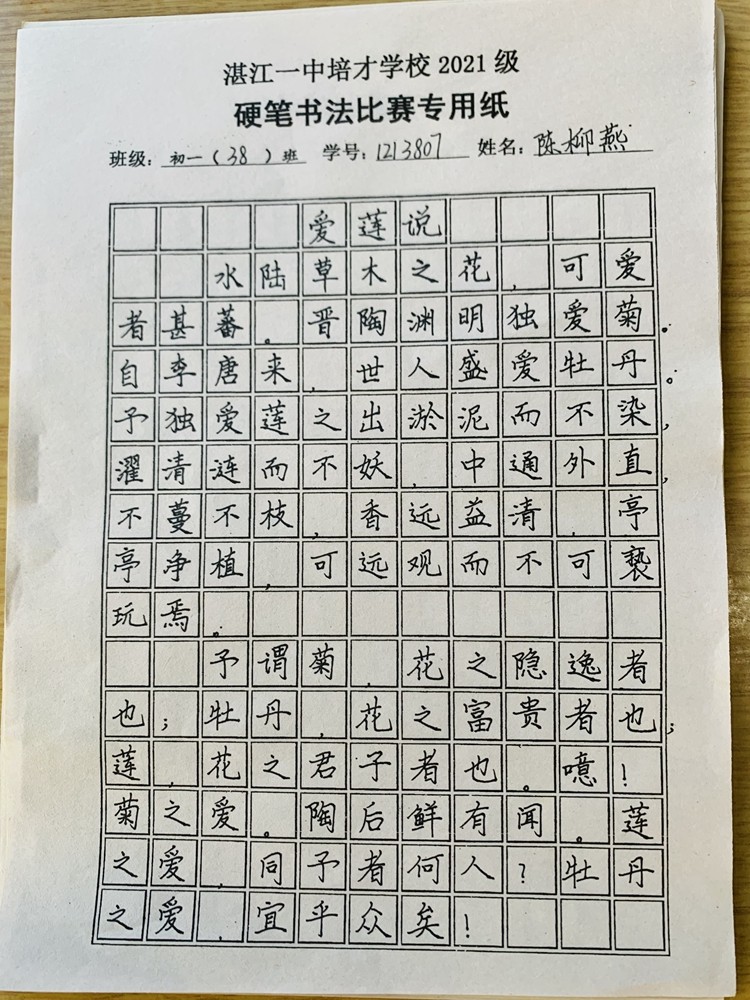 湛江一中培才学校 2021 级
硬笔书法比赛专用纸
班级：初一（38）班 学号：1213807 姓名：陈柳燕
爱莲说
水陆草木之花，可爱
者甚蕃。晋陶渊明独爱菊。
自李唐来，世人盛爱牡丹。
予独爱莲之出淤泥而不染，
濯清涟而不妖，中通外直，
不蔓不枝，香远益清，亭
亭净植，可远观而不可亵
玩焉。
予谓菊，花之隐逸者
也；牡丹，花之富贵者也；
莲，花之君子者也。噫！
菊之爱。陶后鲜有闻。莲
之爱，同予者何人？牡丹
之爱，宜乎众矣！